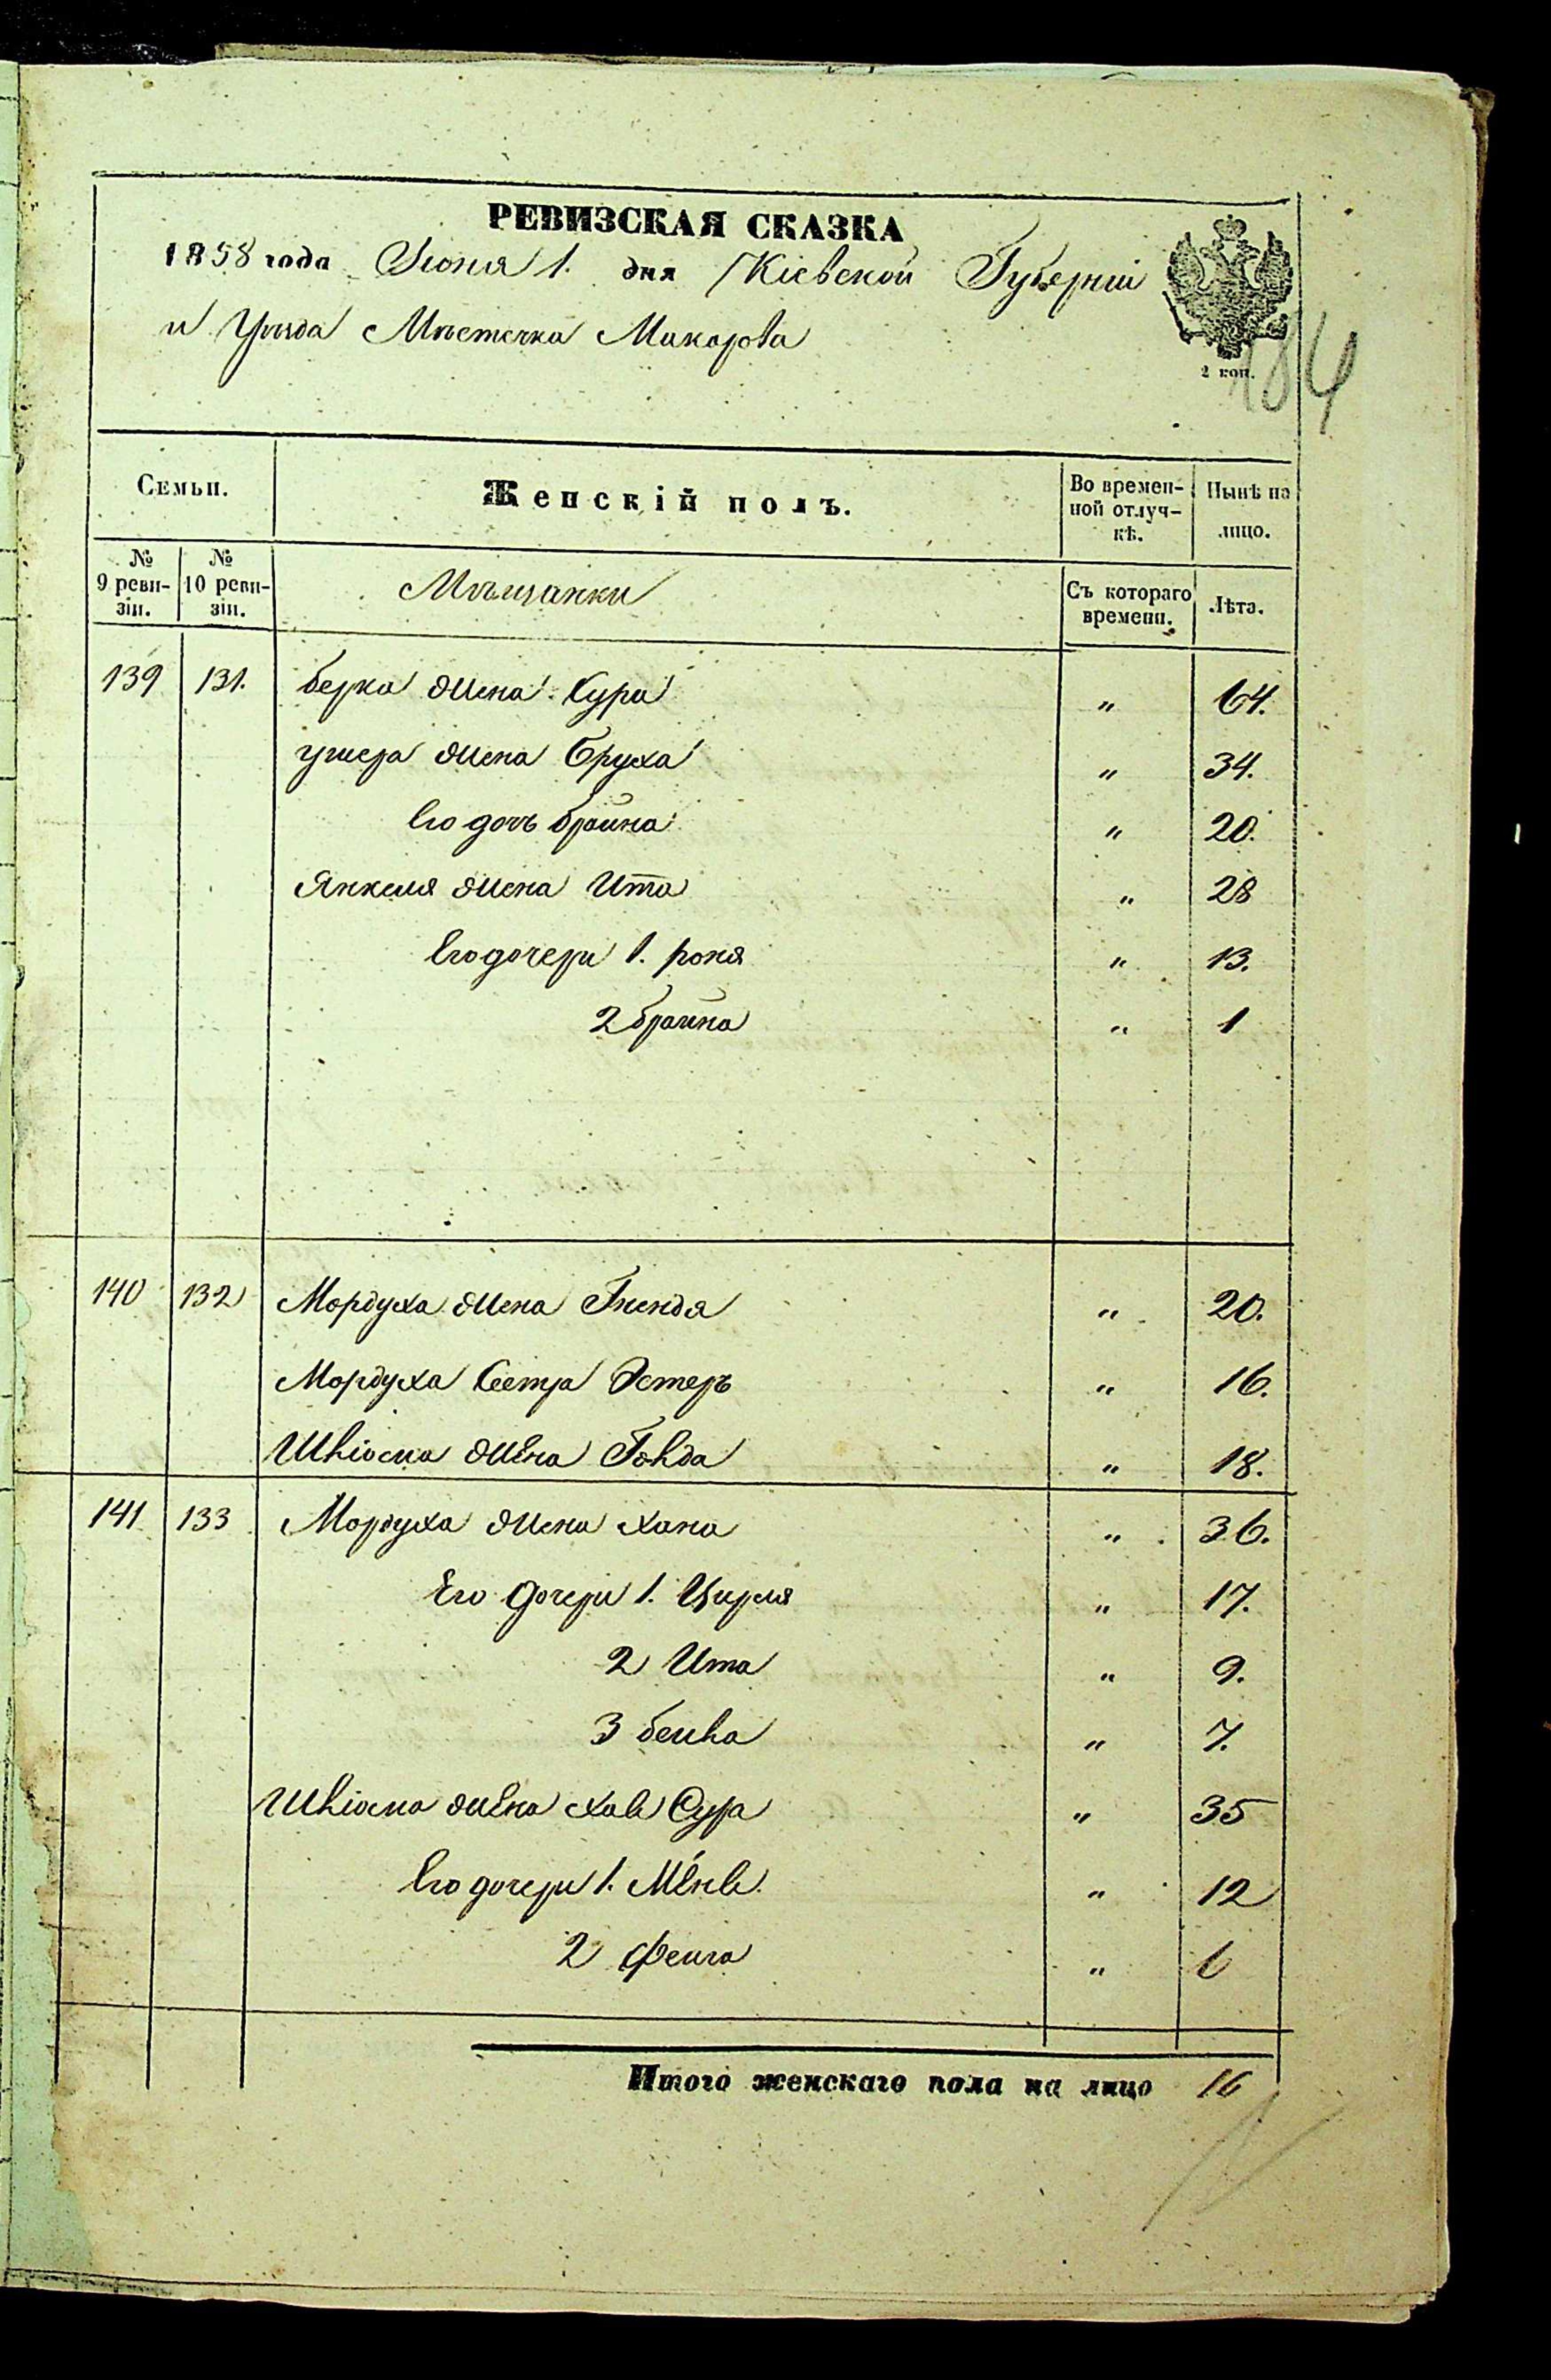 РЕВИЗСКАЯ СКАЗКА
1858 года Іюня 1. дня Кіевской Губерніи
и Уѣзда Мѣстечка Макарова
2 коп.
184
Семьи.
Женскій полъ.
Во времен-
ной отлуч-
кѣ.
Нынѣ на
лицо.
№ 9 реви-
зіи.
№ 10 реви-
зіи.
Мѣщанки
Съ котораго
времени.
Лѣта.
139 131. берка жена Сура " 64.
ушера жена Бруха " 34.
Его дочь брайна " 20.
Янкеля жена Ита " 28
Его дочери 1. роня " 13.
2 брайна " 1
140 132 Мордуха жена Гненда " 20.
Мордуха Сестра Эстеръ " 16.
Шліома жена Голда " 18.
141 133 Мордуха жена хана " 36.
Его дочери 1. Цирля " 17.
2 Ита " 9.
3 бейла " 7.
Шліома жена Хае Сура " 35
Его дочери 1. " 12
2 фейга " 6
Итого женскаго пола на лицо 16